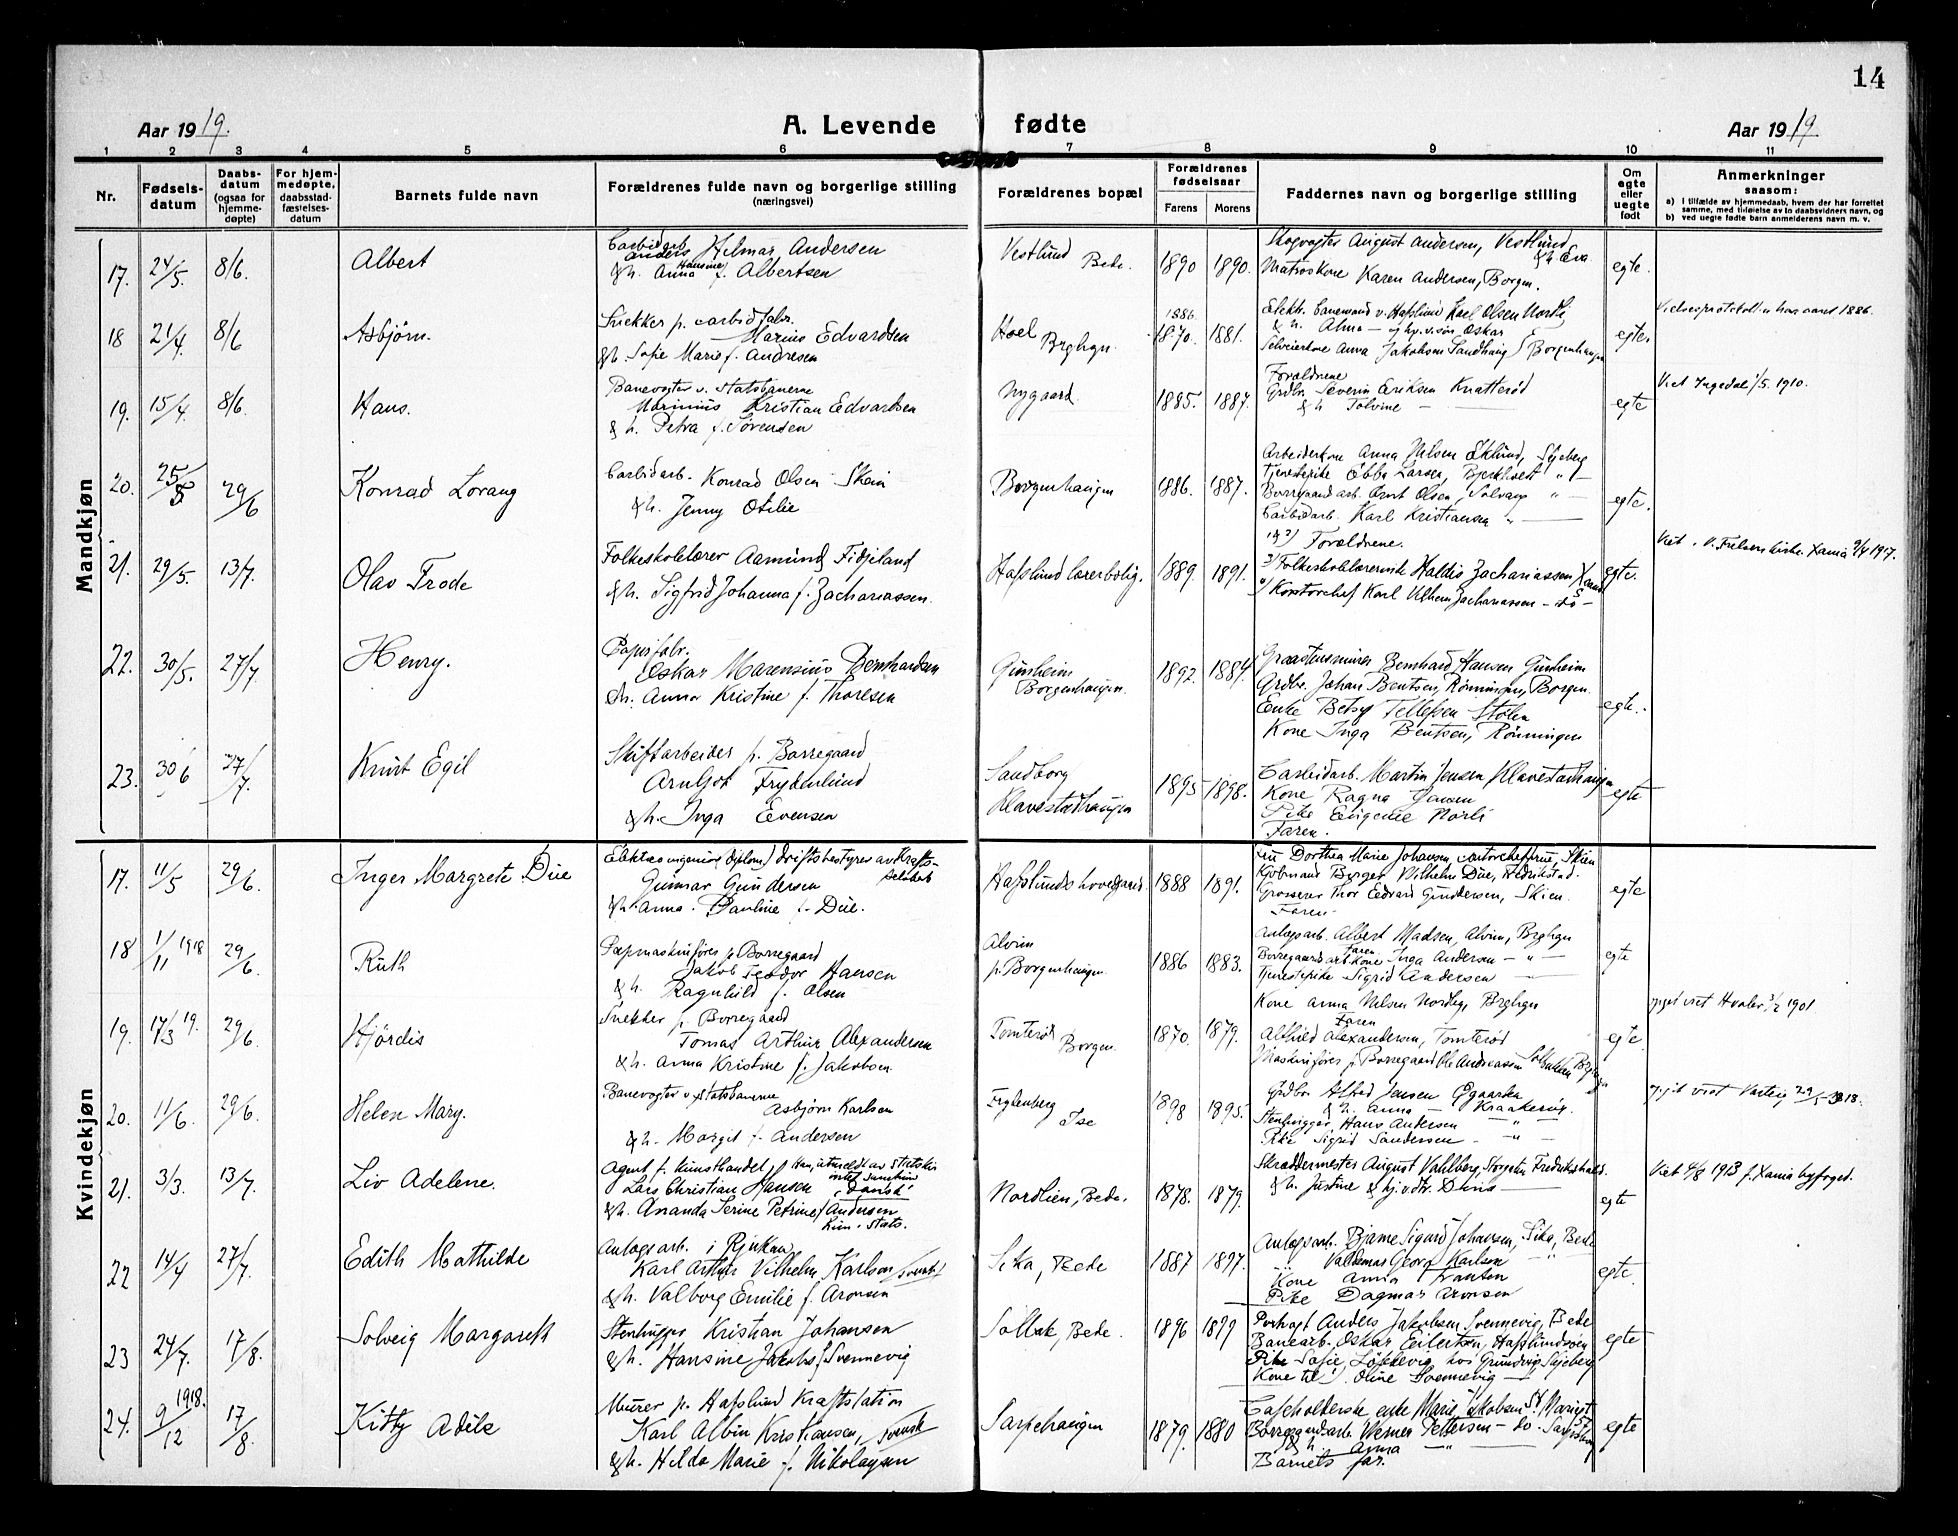 14
Aar 1919.
A. Levende fødte
Aar 1919
1 2 3 4 5 6 7 8 9 10 11
Nr.
Fødsels-
datum
Daabs-
datum
(ogsaa for
hjemme-
døpte)
For hjem-
medøpte,
daabsstad-
fæstelses-
datum
Barnets fulde navn
Forældrenes fulde navn og borgerlige stilling
(næringsvei)
Forældrenes bopæl
Forældrenes
fødselsaar
Farens Morens
Faddernes navn og borgerlige stilling
Om
egte
eller
uegte
født
Anmerkninger
saasom:
a) I tilfælde av hjemmedaab, hvem der har forrettet
samme, med tilføielse av to daabsvidners navn, og
b) ved uegte fødte barn anmelderens navn m. v.
Mandkjøn
17. 24/5. 8/6. Albert
Carbidarb.
Anders Hilmar Andersen
&h. Anna Hansine f. Albertsen
Vestlund Bede.
1890 1890.
Skogvogter August Andersen, Vestlund
&h Eva
Matroskone Karen Andersen, Borgen.
egte.
18 21/4. 8/6 Asbjørn.
Snekker p. carbidfabr.
Marius Edvardsen
&h. Sofie Marie f. Andresen
Hoel Brghgn.
1886.
1870. 1881.
Elektr. banemand v. Hafslund Karl Olsen
&h. Alma Oskar
Anna Jakobsen Borgenhaugen
egte.
1886.
19. 15/4 8/6 Hans.
Banevogter v. Statsbanerne
Marinius Kristian Edvardsen
&h. Petra f. Sørensen
Nygaard.
1885. 1887.
Forældrene
Grdbr. Severin Eriksen Knatterød
&h Tolvine —
egte
Viet Ingedal 1/5. 1910.
20. 25/5 29/6 Konrad Lorang
Carbidarb. Konrad Olsen Skein
&h. Jenny Otilie
Borgenhaugen
1886. 1887.
Arbeiderkone Anna Nilsen Eklund,
Tjenestepike Ebba Larsen,
Borregaard arb. Ernt Olsen, Solvang " —
Carbidarb. Karl Kristiansen " —
egte.
21. 29/5. 13/7. Olav Frode
Folkeskolelærer Aamund Fidjeland
&h. Sigfrid Johanna f. Zachariassen.
Hafslund lærerbolig.
1889. 1891.
Forældrene.
Folkeskolelærerinde Haldis Zachariassen
Kontorchef Karl Vilhelm Zachariassen — do —
egte.
22. 30/5. 27/7 Henry.
Papirfabr.
Oskar Marensius Bernhardsen
&h. Anna Kristine f. Thoresen
Gunheim
Borgenhaugen.
1892. 1884
Bernhard Hansen Gunheim
Grdbr. Johan Bentsen, Rønningen, Borgen.
Enke Betsy Tellefsen Stølen
Kone Inga Bentsen, Rønningen
egte.
23. 30/6 27/7. Knut Egil
Skiftarbeider p. Borregaard
Arnljot Frydenlund
&h. Inga Evensen
Sandborg
Klavestadhaugen
1895 1898.
Carbidarb. Martin Jensen Klavestadhaugen
Kone Ragna Jensen
Pike Eugenie Norli
Faren.
egte
Kvindekjøn
17. 11/5 29/6. Inger Margrete Due
Elektroingeniør (diplom) driftsbestyrer av Krafts-
Gunnar Gundersen selskab
&h. Anna Pauline f. Due.
Hafslunds hovedgaard.
1888 1891.
Fru Dorthea Marie Johansen, Skien
Kjøbmand Birger Vilhelm Due, Fredrikstad.
Grosserer Thor Edvard Gundersen, Skien.
Faren.
egte
18 1/11 1918 29/6. Ruth
Papmaskinfører p Borregaard
Jakob Teodor Hansen
&h. Ragnhild f. Olsen
Alvim
p. Borgenhaugen
1886 1883.
Anlegsarb. Albert Madsen, Alvim, Brghgn
Faren
Borregaards arb kone Inga Andersen — " —
Tjenestepike Sigrid Andersen —
Kone Anna Nilsen Brghgn
egte
19. 17/3 19. 29/6. Hjørdis
Snekker p. Borregaard
Tomas Arthur Alexandersen
&h. Anna Kristine f. Jakobsen
Tomterød Borgen.
1870. 1879.
Faren
Alfhild Alexandersen, Tomterød
Maskinfører p Borregaard Ole Andreassen
egte
opgit viet Hvaler 1901
20. 11/6. 29/6. Helen Mary.
Banevogter v Statsbanerne
Asbjørn Karlsen
&h. Margit f. Andersen
Fuglenberg Ise
1898 1895.
Grdbr Alfred Jensen
&h. Anna —
Stenhugger Hans Andersen
Pike Sigrid Sandersen — " —
opgit viet Varteig 29/ 18.
21. 3/3. 13/7. Liv Adelene.
Agent f. Kunsthandel
Lars Christian Hansen dansk
&h. Ananda Serine Petrine f. Andersen
Nordlien, Bede.
1878. 1879.
Skræddermester August Vahlberg, Storgaten Fredrikshald.
&h. Justine & hj.v.dtr. Dina —
egte
Viet 4/8 1913 f. Xania byfoged.
22 14/4 27/7. Edith Mathilde
Anlegsarb. i Rjukan
Karl Arthur Vilhelm Karlson (svensk)
&h. Valborg Emilie f. Aronsen
Sika, Bede
1887 1897.
Anlegsarb. Bjarne Sigurd Johansen, Sika, Bede
Valdemar Georg Karlsen "
Kone Anna Frantsen
Pike Dagmar Aronsen
egte.
23 24/7. 17/8. Solveig Margareth
Stenhugger Kristian Johansen
&h. Hansine Jakobs f Svennevig
Solbak, Bede.
1896 1899
Anders Jakobsen Svennevig, Bede
Banearb. Oskar Eilertsen, Hafslundsøen
Pike Sofie Løkkevig hos Grundvig
Kone til 1. Oline Svennevig —
egte
24. 9/12 1918. 17/8. Kitty Adele
Murer p. Hafslund Kraftstation
Karl Albin Kristiansen, svensk
&h. Hilda Marie f. Nikolaysen
Sarpehaugen
1879. 1880
enke Marie Jakobsen St. Mariegt
Borregaardarb. Werner Pettersen — do. Sarpsborg
&h. Anna — " —
Barnets far.
egte